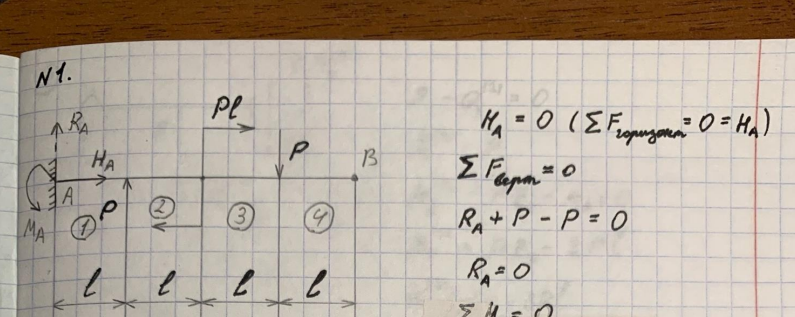 N1.
Pl
R_A
H_A
P
B
A
M_A
P
1
2
3
4
l l l l
H_A = 0 (ΣF_горизонт = 0 = H_A)
ΣF_верт = 0
R_A + P - P = 0
R_A = 0